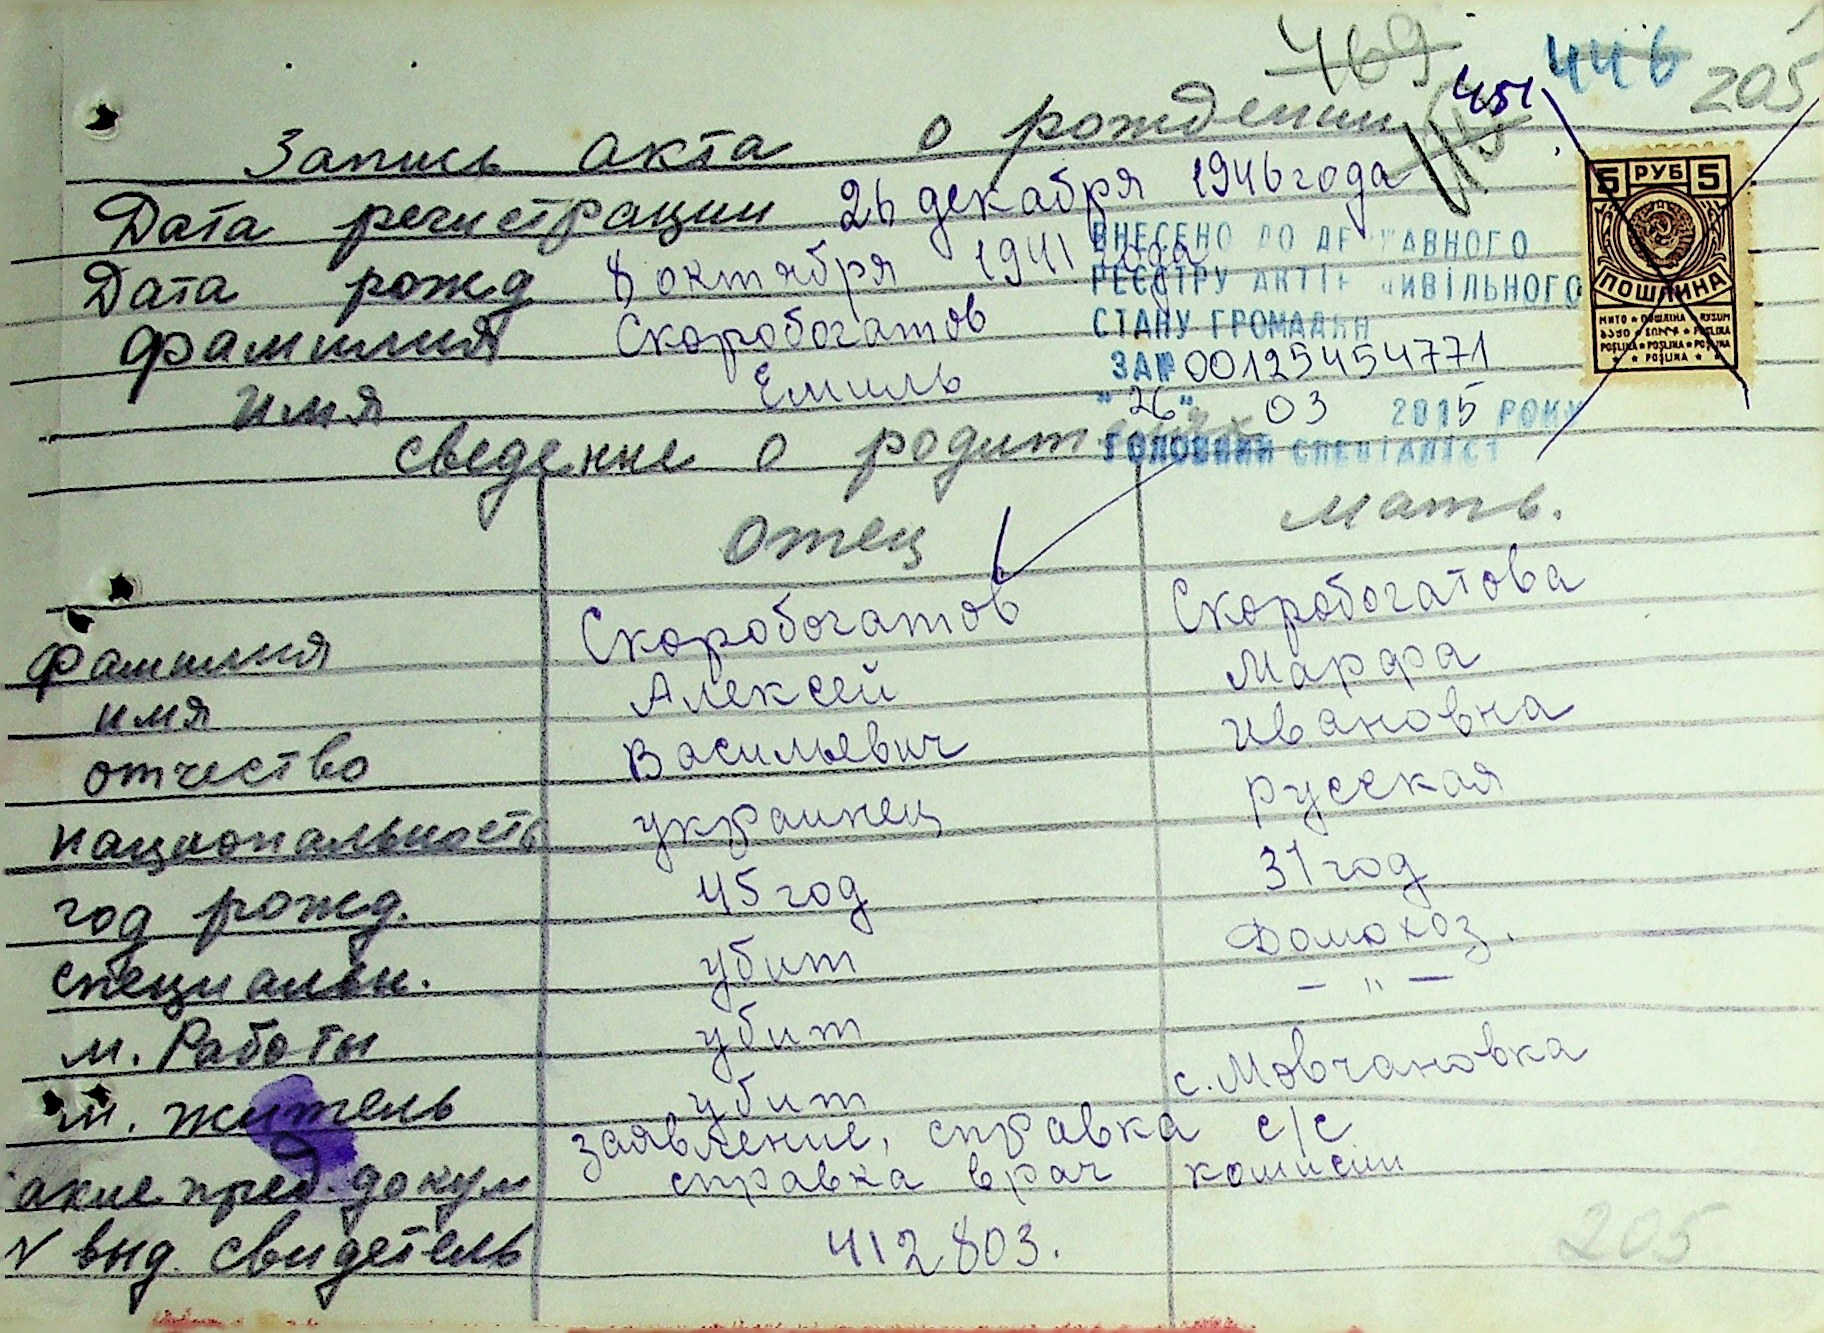 469 451 446 205
Запись акта о рождении 445
Дата регистрации 26 декабря 1946 года
Дата рожд 8 октября 1941 года
фамилия Скоробогатов
имя Емиль
ВНЕСЕНО ДО ДЕРЖАВНОГО
РЕЄСТРУ АКТІВ ЦИВІЛЬНОГО
СТАНУ ГРОМАДЯН
ЗА № 00125454771
"26" 03 2015 РОКУ
ГОЛОВНИЙ СПЕЦІАЛІСТ
5 РУБ 5
ПОШЛИНА
сведение о родителях
отец мать.
фамилия Скоробогатов Скоробогатова
имя Алексей Марфа
отчество Васильевич Ивановна
национальность украинец русская
год рожд. 45 год 31 год
специальн. убит Домохоз.
м. Работы убит – " –
м. житель убит с. Мовчановка
акие пред. докум заявление, справка с/с
справка врач комисии
N выд. свидетель 412803.
205